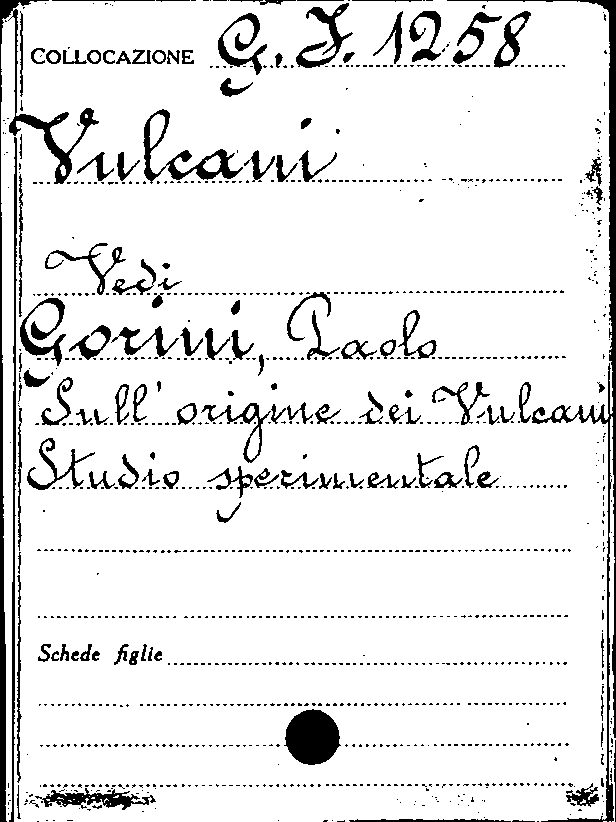 COLLOCAZIONE G. I. 1258
Vulcani
Vedi
Gorini, Paolo
Sull' origine dei Vulcani
Studio sperimentale
Schede figlie